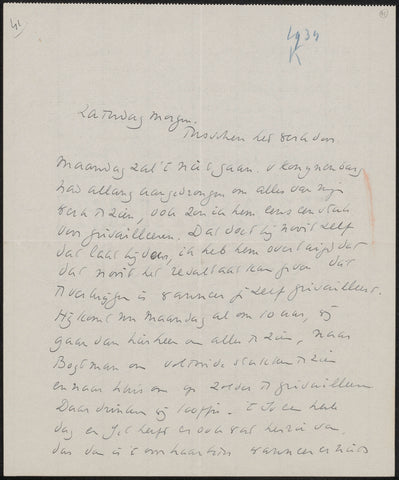 1934
K
Zaterdag morgen.
Tusschen het werk door
Maandag zal 't niet gaan. v Konynenburg
had allang aangedrongen om alles van mijn
werk te zien, ook zou ik hem eens een stuk
voor grivailleeren. Dat doet hij nooit zelf
dat laat hij over, ik heb hem overtuigd dat
dat nooit het resultaat kan geven dat
te verkrijgen is wanneer je zelf grivailleert.
Hij komt nu Maandag al om 10 uur, wij
gaan dan hier heen om alles te zien, naar
Bogtman om voltooide stukken te zien
en naar huis om op zolder te grivailleeren
Daar drinken wij koffie. 't Is een heele
dag en heeft er ook wat
dan is 't wanneer